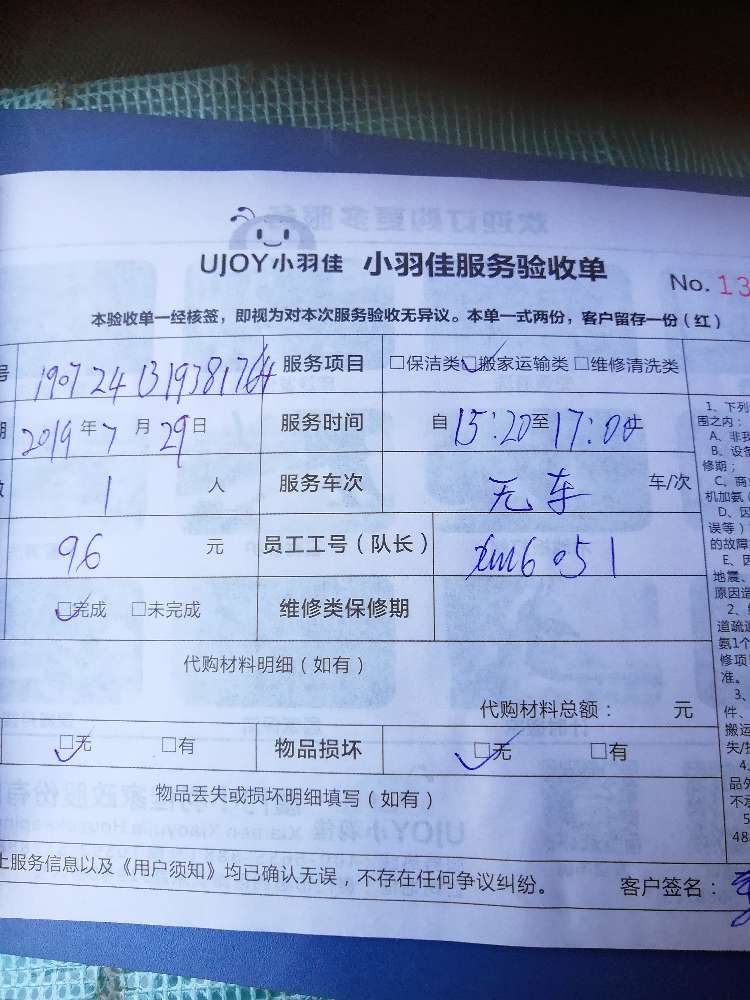 UJOY小羽佳 小羽佳服务验收单
No. 13
本验收单一经核签，即视为对本次服务验收无异议。本单一式两份，客户留存一份（红）
号 190724131938176 服务项目 □保洁类 □搬家运输类 □维修清洗类
期 2019年7月29日 服务时间 自15:20至17:00止
数 1 人 服务车次 无车 车/次
96 元 员工工号（队长） xm6051
□完成 □未完成 维修类保修期
代购材料明细（如有）
代购材料总额： 元
□无 □有 物品损坏 □无 □有
物品丢失或损坏明细填写（如有）
上服务信息以及《用户须知》均已确认无误，不存在任何争议纠纷。 客户签名：
1、下列
围之内：
A、非我
B、设备
修期；
C、商
机加氨（
D、因
误等）
的故障
E、因
地震、
原因造
2、
道疏通
氨1个
修项
准。
3、
件、
搬运
失/损
4、
品外
不承
5
48